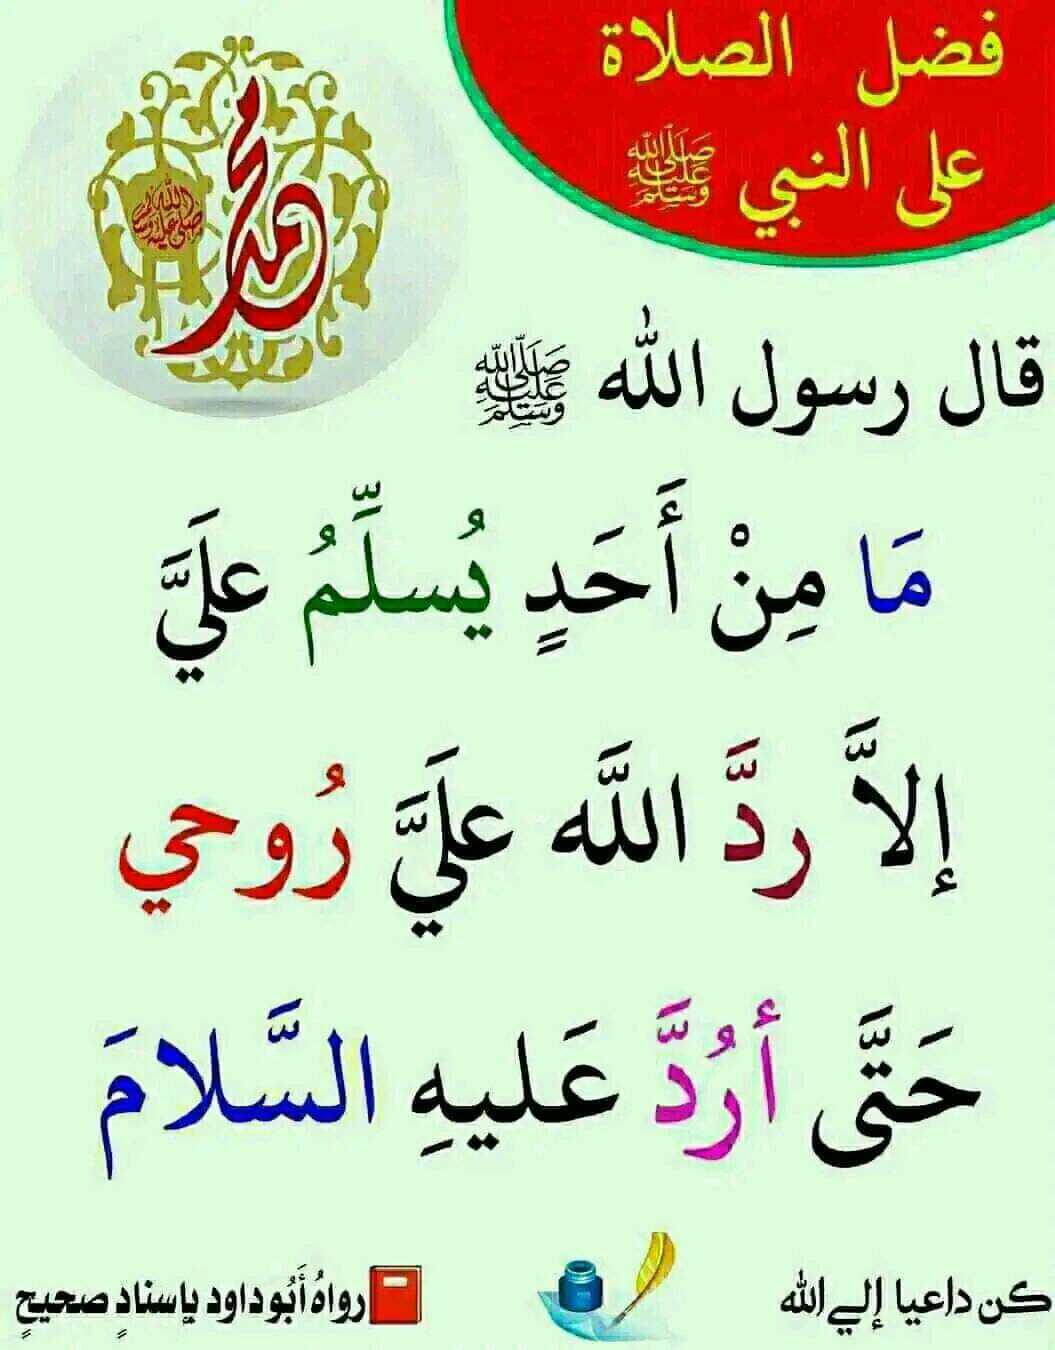 فضل الصلاة
على النبي ﷺ
محمد
صلى الله عليه وسلم
قال رسول الله ﷺ
مَا مِنْ أَحَدٍ يُسلِّمُ علَيَّ
إلاَّ ردَّ اللَّه علَيَّ رُوحي
حَتَّى أرُدَّ عَليهِ السَّلامَ
كن داعيا إلي الله
رواهُ أَبُو داود بإسنادٍ صحيحٍ